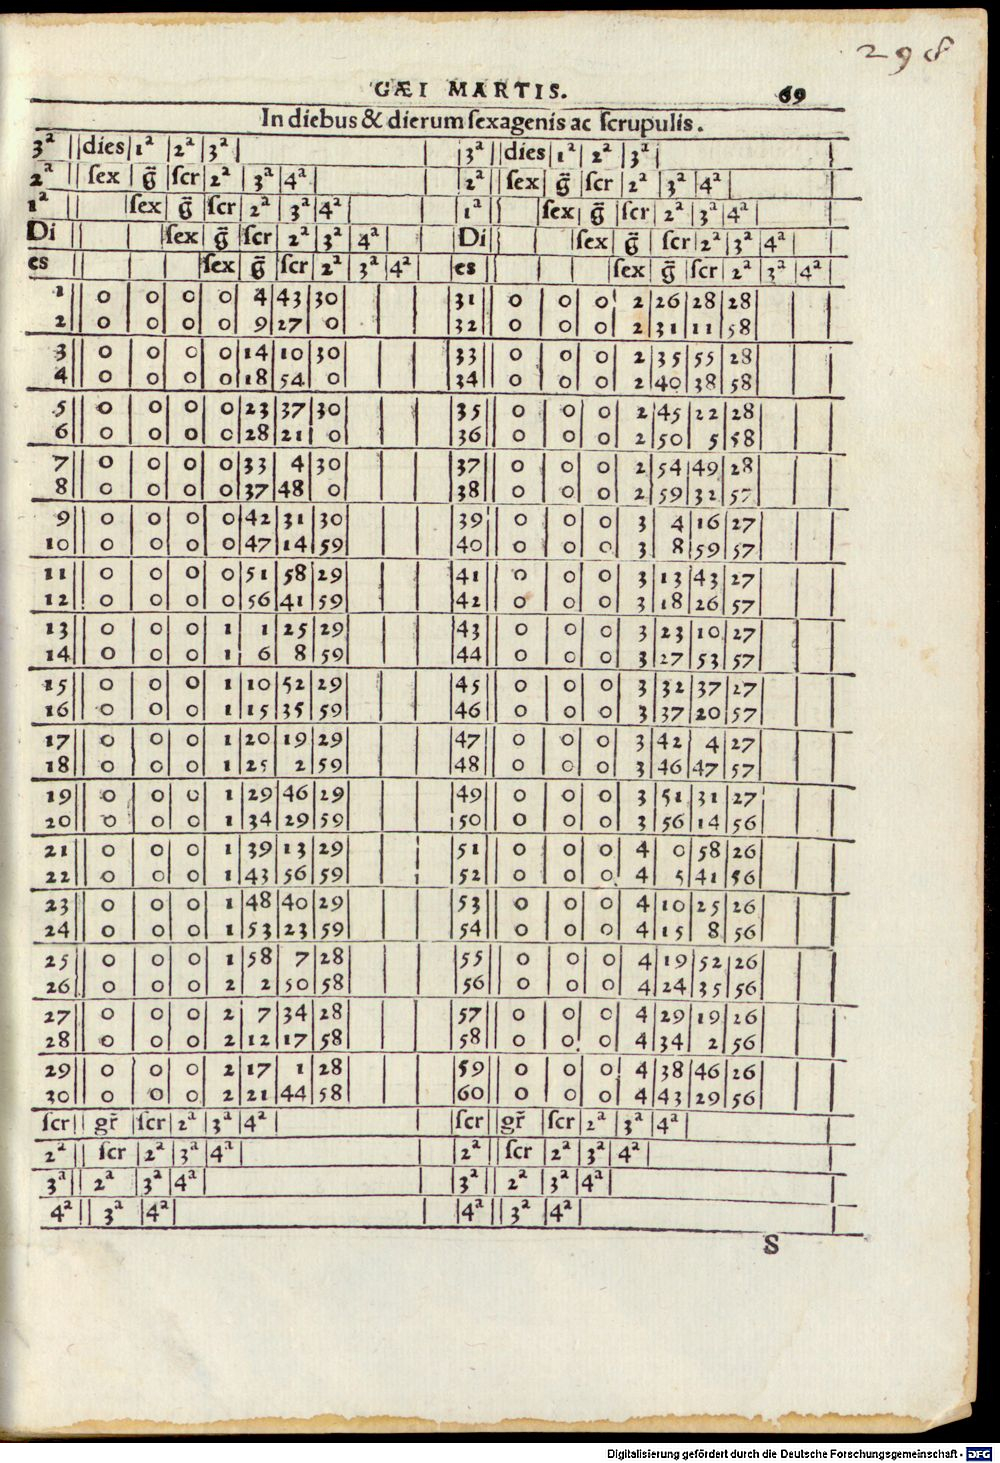 298
GÆI MARTIS. 69
In diebus & dierum ſexagenis ac ſcrupulis.
3ª dies 1ª 2ª 3ª 3ª dies 1ª 2ª 3ª
2ª ſex g̃ ſcr 2ª 3ª 4ª 2ª ſex g̃ ſcr 2ª 3ª 4ª
1ª ſex g̃ ſcr 2ª 3ª 4ª 1ª ſex g̃ ſcr 2ª 3ª 4ª
Di ſex g̃ ſcr 2ª 3ª 4ª Di ſex g̃ ſcr 2ª 3ª 4ª
es ſex g̃ ſcr 2ª 3ª 4ª es ſex g̃ ſcr 2ª 3ª 4ª
1 0 0 0 0 4 43 30 31 0 0 0 2 26 28 28
2 0 0 0 0 9 27 0 32 0 0 0 2 31 11 58
3 0 0 0 0 14 10 30 33 0 0 0 2 35 55 28
4 0 0 0 0 18 54 0 34 0 0 0 2 40 38 58
5 0 0 0 0 23 37 30 35 0 0 0 2 45 22 28
6 0 0 0 0 28 21 0 36 0 0 0 2 50 5 58
7 0 0 0 0 33 4 30 37 0 0 0 2 54 49 28
8 0 0 0 0 37 48 0 38 0 0 0 2 59 32 57
9 0 0 0 0 42 31 30 39 0 0 0 3 4 16 27
10 0 0 0 0 47 14 59 40 0 0 0 3 8 59 57
11 0 0 0 0 51 58 29 41 0 0 0 3 13 43 27
12 0 0 0 0 56 41 59 42 0 0 0 3 18 26 57
13 0 0 0 1 1 25 29 43 0 0 0 3 23 10 27
14 0 0 0 1 6 8 59 44 0 0 0 3 27 53 57
15 0 0 0 1 10 52 29 45 0 0 0 3 32 37 27
16 0 0 0 1 15 35 59 46 0 0 0 3 37 20 57
17 0 0 0 1 20 19 29 47 0 0 0 3 42 4 27
18 0 0 0 1 25 2 59 48 0 0 0 3 46 47 57
19 0 0 0 1 29 46 29 49 0 0 0 3 51 31 27
20 0 0 0 1 34 29 59 50 0 0 0 3 56 14 56
21 0 0 0 1 39 13 29 51 0 0 0 4 0 58 26
22 0 0 0 1 43 56 59 52 0 0 0 4 5 41 56
23 0 0 0 1 48 40 29 53 0 0 0 4 10 25 26
24 0 0 0 1 53 23 59 54 0 0 0 4 15 8 56
25 0 0 0 1 58 7 28 55 0 0 0 4 19 52 26
26 0 0 0 2 2 50 58 56 0 0 0 4 24 35 56
27 0 0 0 2 7 34 28 57 0 0 0 4 29 19 26
28 0 0 0 2 12 17 58 58 0 0 0 4 34 2 56
29 0 0 0 2 17 1 28 59 0 0 0 4 38 46 26
30 0 0 0 2 21 44 58 60 0 0 0 4 43 29 56
ſcr gr̃ ſcr 2ª 3ª 4ª ſcr gr̃ ſcr 2ª 3ª 4ª
2ª ſcr 2ª 3ª 4ª 2ª ſcr 2ª 3ª 4ª
3ª 2ª 3ª 4ª 3ª 2ª 3ª 4ª
4ª 3ª 4ª 4ª 3ª 4ª
S
Digitalisierung gefördert durch die Deutsche Forschungsgemeinschaft - DFG